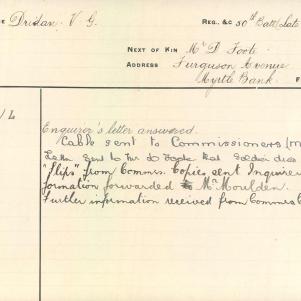 E Dridan. V. G. REG. &C 50th Batt (Late
NEXT OF KIN Mr D Foote
ADDRESS Ferguson Avenue
Myrtle Bank. F
/L
Enquirer's letter answered.
Cable sent to Commissioners (M
Letter sent to Mr D Foote that Soldier died
"Slips" from Commrs. Copies sent Inquirer
formation forwarded to Mr Moulden.
Further information received from Commrs C